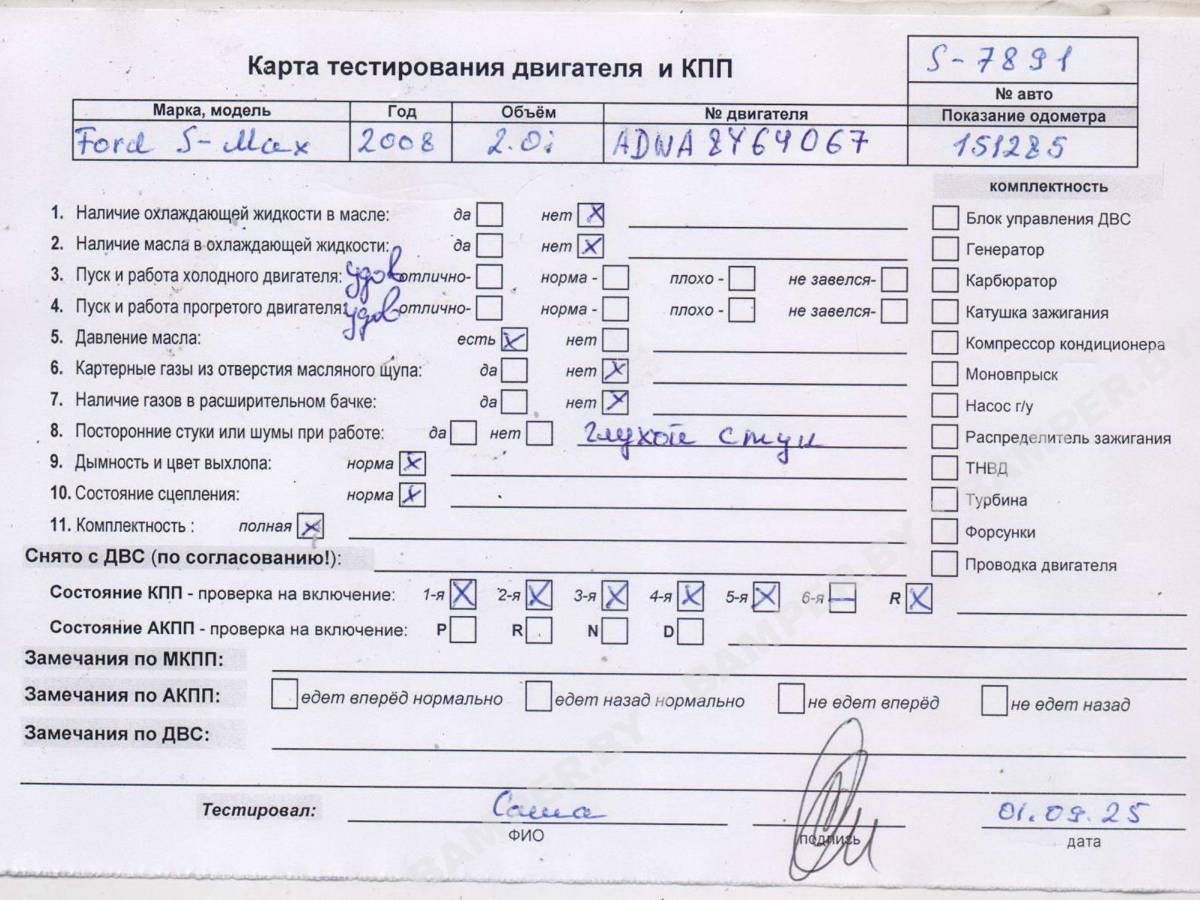 S-7891
Карта тестирования двигателя и КПП
№ авто
Марка, модель Год Объём № двигателя Показание одометра
Ford S-Max 2008 2.0i ADWA 8Y64067 151285
комплектность
1. Наличие охлаждающей жидкости в масле: да нет X
Блок управления ДВС
2. Наличие масла в охлаждающей жидкости: да нет X
Генератор
3. Пуск и работа холодного двигателя: удов отлично- норма - плохо - не завелся-
Карбюратор
4. Пуск и работа прогретого двигателя: удов отлично- норма - плохо - не завелся-
Катушка зажигания
5. Давление масла: есть X нет
Компрессор кондиционера
6. Картерные газы из отверстия масляного щупа: да нет X
Моновпрыск
7. Наличие газов в расширительном бачке: да нет X
Насос г/у
8. Посторонние стуки или шумы при работе: да нет глухой стук
Распределитель зажигания
9. Дымность и цвет выхлопа: норма X
ТНВД
10. Состояние сцепления: норма X
Турбина
11. Комплектность : полная X
Форсунки
Снято с ДВС (по согласованию!):
Проводка двигателя
Состояние КПП - проверка на включение: 1-я X 2-я X 3-я X 4-я X 5-я X 6-я — R X
Состояние АКПП - проверка на включение: P R N D
Замечания по МКПП:
Замечания по АКПП: едет вперёд нормально едет назад нормально не едет вперёд не едет назад
Замечания по ДВС:
Тестировал: Саша 01.09.25
ФИО подпись дата
BAMPER.BY